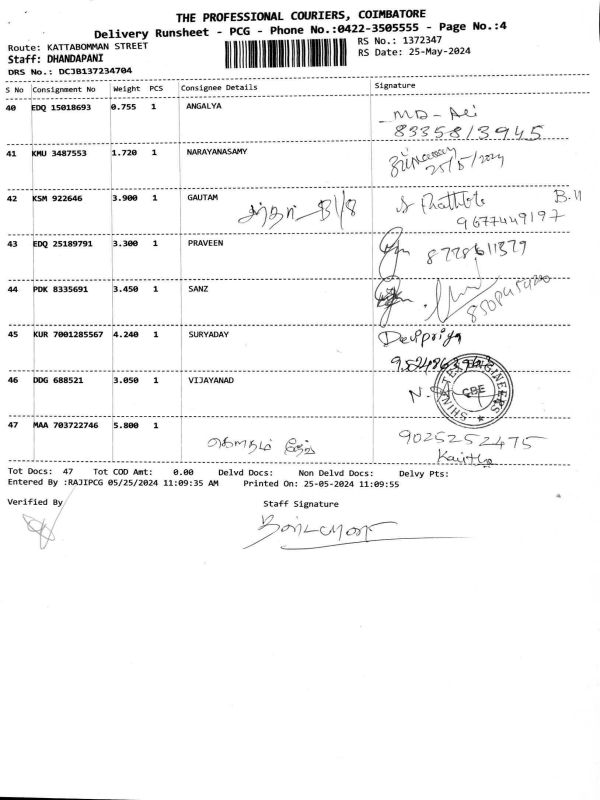 THE PROFESSIONAL COURIERS, COIMBATORE
Delivery Runsheet - PCG - Phone No.:0422-3505555 - Page No.:4
Route: KATTABOMMAN STREET
RS No.: 1372347
Staff: DHANDAPANI
RS Date: 25-May-2024
DRS No.: DCJB137234704
S No Consignment No Weight PCS Consignee Details Signature
40 EDQ 15018693 0.755 1 ANGALYA MD - Ali
8335813945
41 KMU 3487553 1.720 1 NARAYANASAMY
25/5/2024
42 KSM 922646 3.900 1 GAUTAM
9677449197
43 EDQ 25189791 3.300 1 PRAVEEN
8778611379
44 PDK 8335691 3.450 1 SANZ
45 KUR 7001285567 4.240 1 SURYADAY Devipriya
46 DDG 688521 3.050 1 VIJAYANAD
CBE
47 MAA 703722746 5.800 1
9025252475
Tot Docs: 47 Tot COD Amt: 0.00 Delvd Docs: Non Delvd Docs: Delvy Pts:
Entered By :RAJIPCG 05/25/2024 11:09:35 AM Printed On: 25-05-2024 11:09:55
Verified By Staff Signature